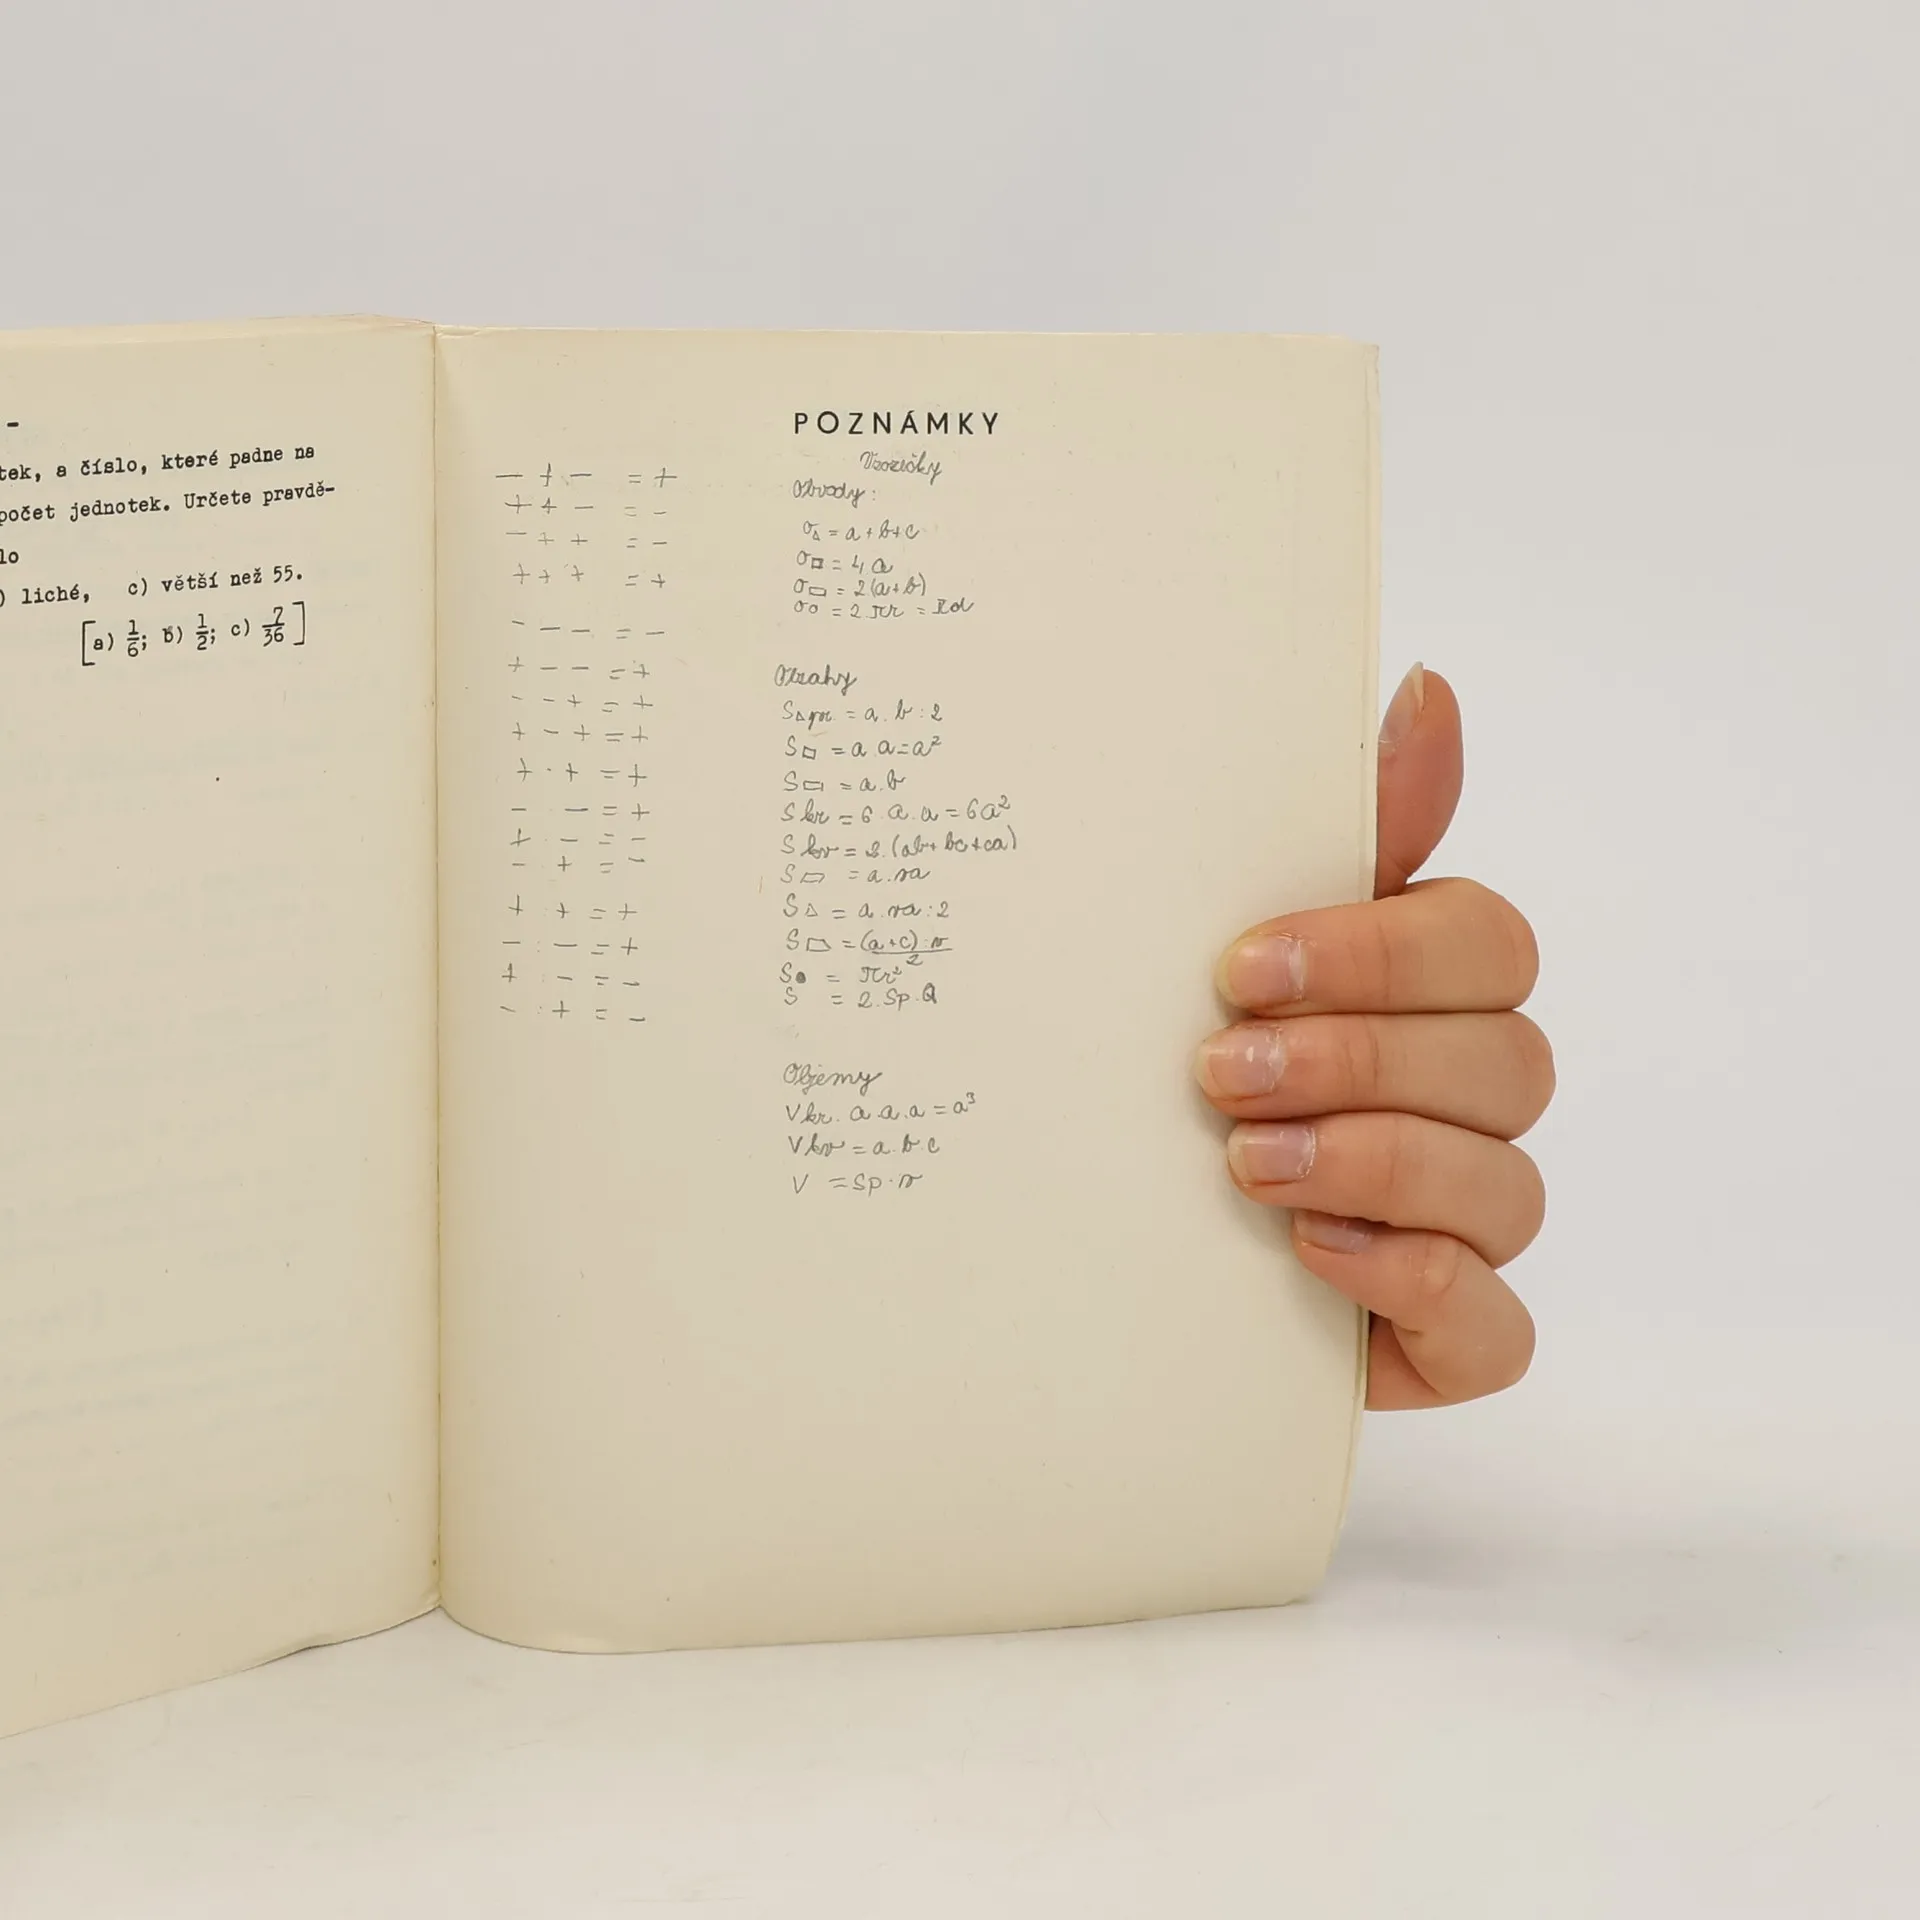 -
tek, a číslo, které padne na
počet jednotek. Určete pravdě-
lo
) liché, c) větší než 55.
[a) 1/6; b) 1/2; c) 7/36]
POZNÁMKY
Vzorečky
− + − = +
+ + − = −
− + + = −
+ + + = +
− − − = −
+ − − = +
− − + = +
+ − + = +
+ · + = +
− − = +
+ − = −
− + = −
+ : + = +
− : − = +
+ : − = −
− : + = −
Obvody:
o△ = a+b+c
o□ = 4a
o▭ = 2(a+b)
o○ = 2πr = πd
Obsahy
S△pr. = a.b:2
S□ = a.a=a²
S▭ = a.b
Skr = 6.a.a=6a²
Skv = 2.(ab+bc+ca)
S▱ = a.va
S△ = a.va:2
S⏢ = (a+c).v/2
S● = πr²
S = 2.Sp.Q
Objemy
Vkr. a.a.a = a³
Vkv = a.b.c
V = Sp.v